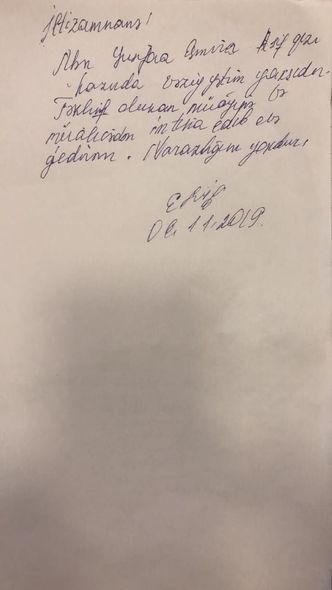 İltizamnamə!
Mən Əmirə Arif qızı
hazırda vəziyyətim yaxşıdır.
Təklif olunan müayinə və
müalicədən imtina edib evə
gedirəm. Narazılığım yoxdur.
11.2019.